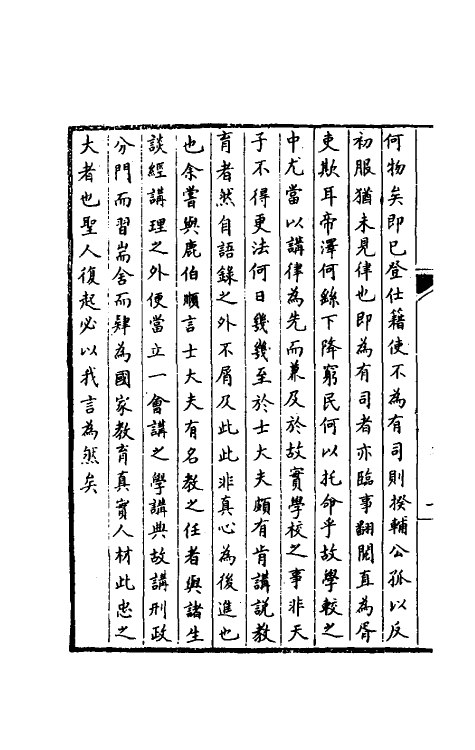 何物矣即已登仕籍使不為有司則揆輔公孤以反
初服猶未見律也即為有司者亦臨事翻閱直為胥
吏欺耳帝澤何繇下降窮民何以托命乎故學較之
中尤當以講律為先而兼及於故實學校之事非天
子不得更法何日幾幾至於士大夫頗有肯講説教
育者然自語錄之外不屑及此此非真心為後進也
也余嘗與鹿伯順言士大夫有名教之任者與諸生
談經講理之外便當立一會講之學講典故講刑政
分門而習耑舍而肄為國家教育真實人材此忠之
大者也聖人復起必以我言為然矣